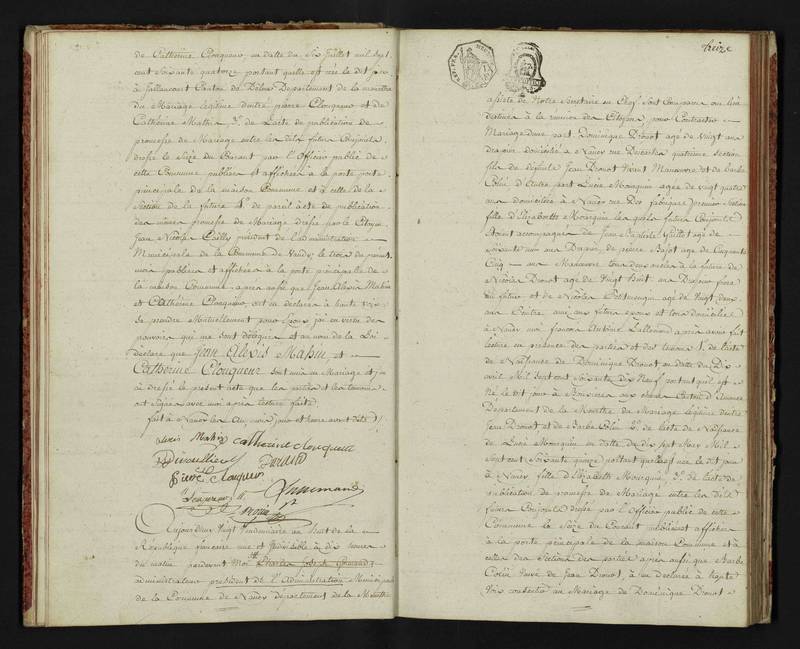 de Catherine Clouqueur, en datte du Six Juillet mil Sept
cent Soixante quatorze portant quelle est née le dit jour
à Jaillancourt Canton de Delme Departement de la meurthe
du Mariage légitime d'entre pierre Clouqueur et de
Catherine Mathis, 3.° de L'acte de publication de
promesse de Mariage entre les dits futurs Conjoints,
dressé le Seize du Courant par l'Officier public de
cette Commune publiée et affichée à la porte
principale de la maison Commune et à celle de la
Section de la future 4.° de pareil acte de publication
des mêmes promesse de Mariage dressé par le Citoyen
Jean Nicolas président de l'administration
Municipale de la Commune de le trois du présent
mois publiée et affichée à la porte principale de
la maison Commune, après aussi que Jean Alexis Mahin
et Catherine Clouqueur, ont eu déclaré à haute voix
se prendre Mutuellement pour Epoux j'ai en vertu des
pouvoirs qui me sont délégués et au nom de la Loi
déclaré que Jean Alexis Mahin et
Catherine Clouqueur sont unis en Mariage et j'ai
dressé le présent acte que les parties et les temoins
ont Signés avec moi après lecture faite
fait à Nancy les An, mois, jour et heure avant dits /.
alexis Mahin Catherine clouqueur
pierre clouqueur
Aujourdhui Vingt Vendemiaire an huit de la
République française une et Indivisible à dix heures
du matin pardevant Moi Charles Joseph
administrateur president de l'Administration Municipale
de la Commune de Nancy département de la Meurthe
treize
assisté de Notre Secretaire en Chef sont Comparus au lieu
destiné à la reunion des Citoyens, pour Contracter
Mariage d'une part Dominique Drouot agé de Vingt ans
Drapier domicilié à Nancy rue quatrieme Section
fils de défunt Jean Drouot Vivant Manœuvre et de barbe
Colin d'Autre part Lucie Mourquin agée de vingt quatre
ans domiciliée à Nancy rue Des fabriques premiere Section
fille d'Elizabeth Mourquin les quels futurs Conjoints
étoient accompagnés de Jean Baptiste agé de
Soixante un ans Drapier, de pierre Bajot agé de Cinquante
Cinq ans Manœuvre tous deux
Nicolas Drouot agé de Vingt huit ans Drapeur frere
du futur et de Nicolas agé de Vingt deux
ans aux futurs époux et tous domiciliés
à Nancy moi françois Antoine Lallemand après avoir fait
lecture en présence des parties et des temoins 1.° de l'acte
de Naissance de Dominique Drouot en datte du Dix
avril Mil Sept cent Soixante dix Neuf portant qu'il est
Né le dit jour à aux Canton d'
Département de la Meurthe du Mariage légitime d'entre
Jean Drouot et de Barbe Colin 2.° de l'acte de Naissance
de Lucie Mourquin en datte du dix sept Mars Mil
Sept cent Soixante quinze portant quelle est née le dit jour
à Nancy fille d'Elizabeth Mourquin, 3.° de l'acte de
publication de promesse de Mariage entre les dits
futurs Conjoints dressé par l'Officier public de cette
Commune le Seize du Courant publiée et affichée
à la porte principale de la maison Commune et à
celles des Sections des parties après aussi que Barbe
Colin Veuve de Jean Drouot, à eu déclaré à haute
Voix consentir au Mariage de Dominique Drouot